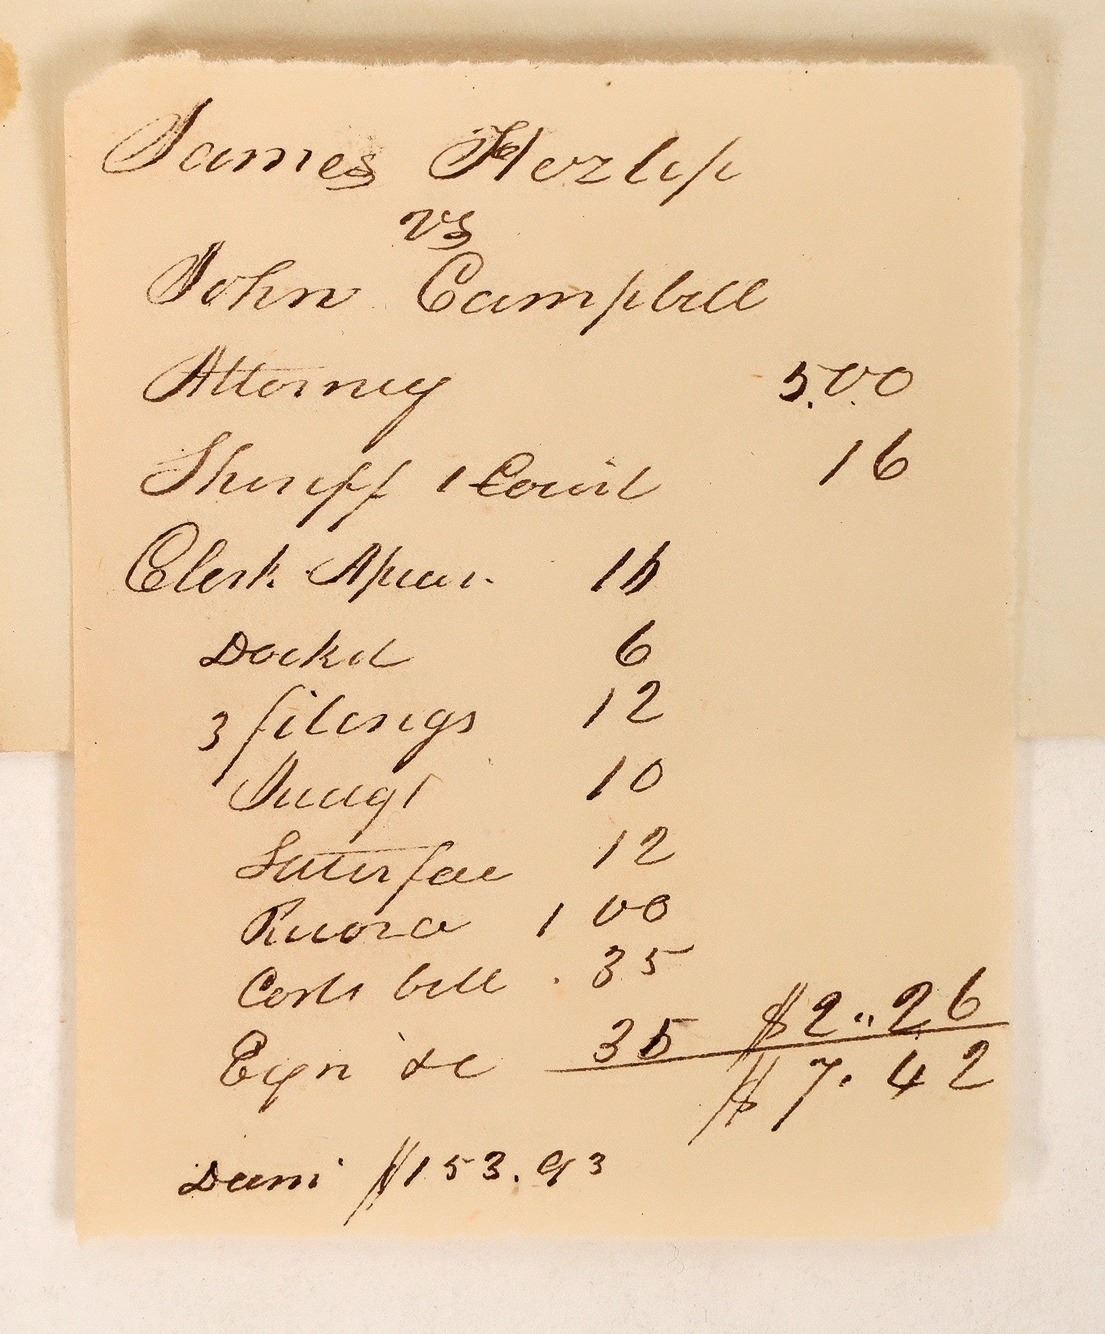 James Hezlep
vs
John Campbell
Attorney 5.00
Sheriff 1 Court 16
Clerk Apear. 16
Docket 6
3 filings 12
Judgt 10
Satisfac 12
Record 1 00
Costs bill . 35
Exn &c 35 $2.. 26
$7. 42
Dam $153.93